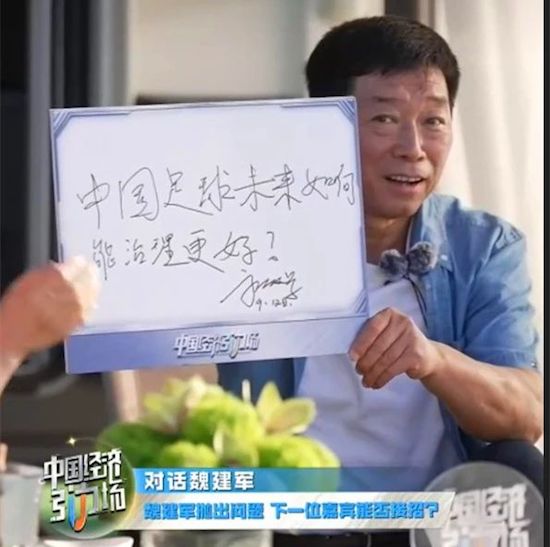 中国足球未来如何
能治理更好？
9.12日.
中国经济引力场
中国经济
引力场
对话魏建军
魏建军抛出问题 下一位嘉宾能否接招？